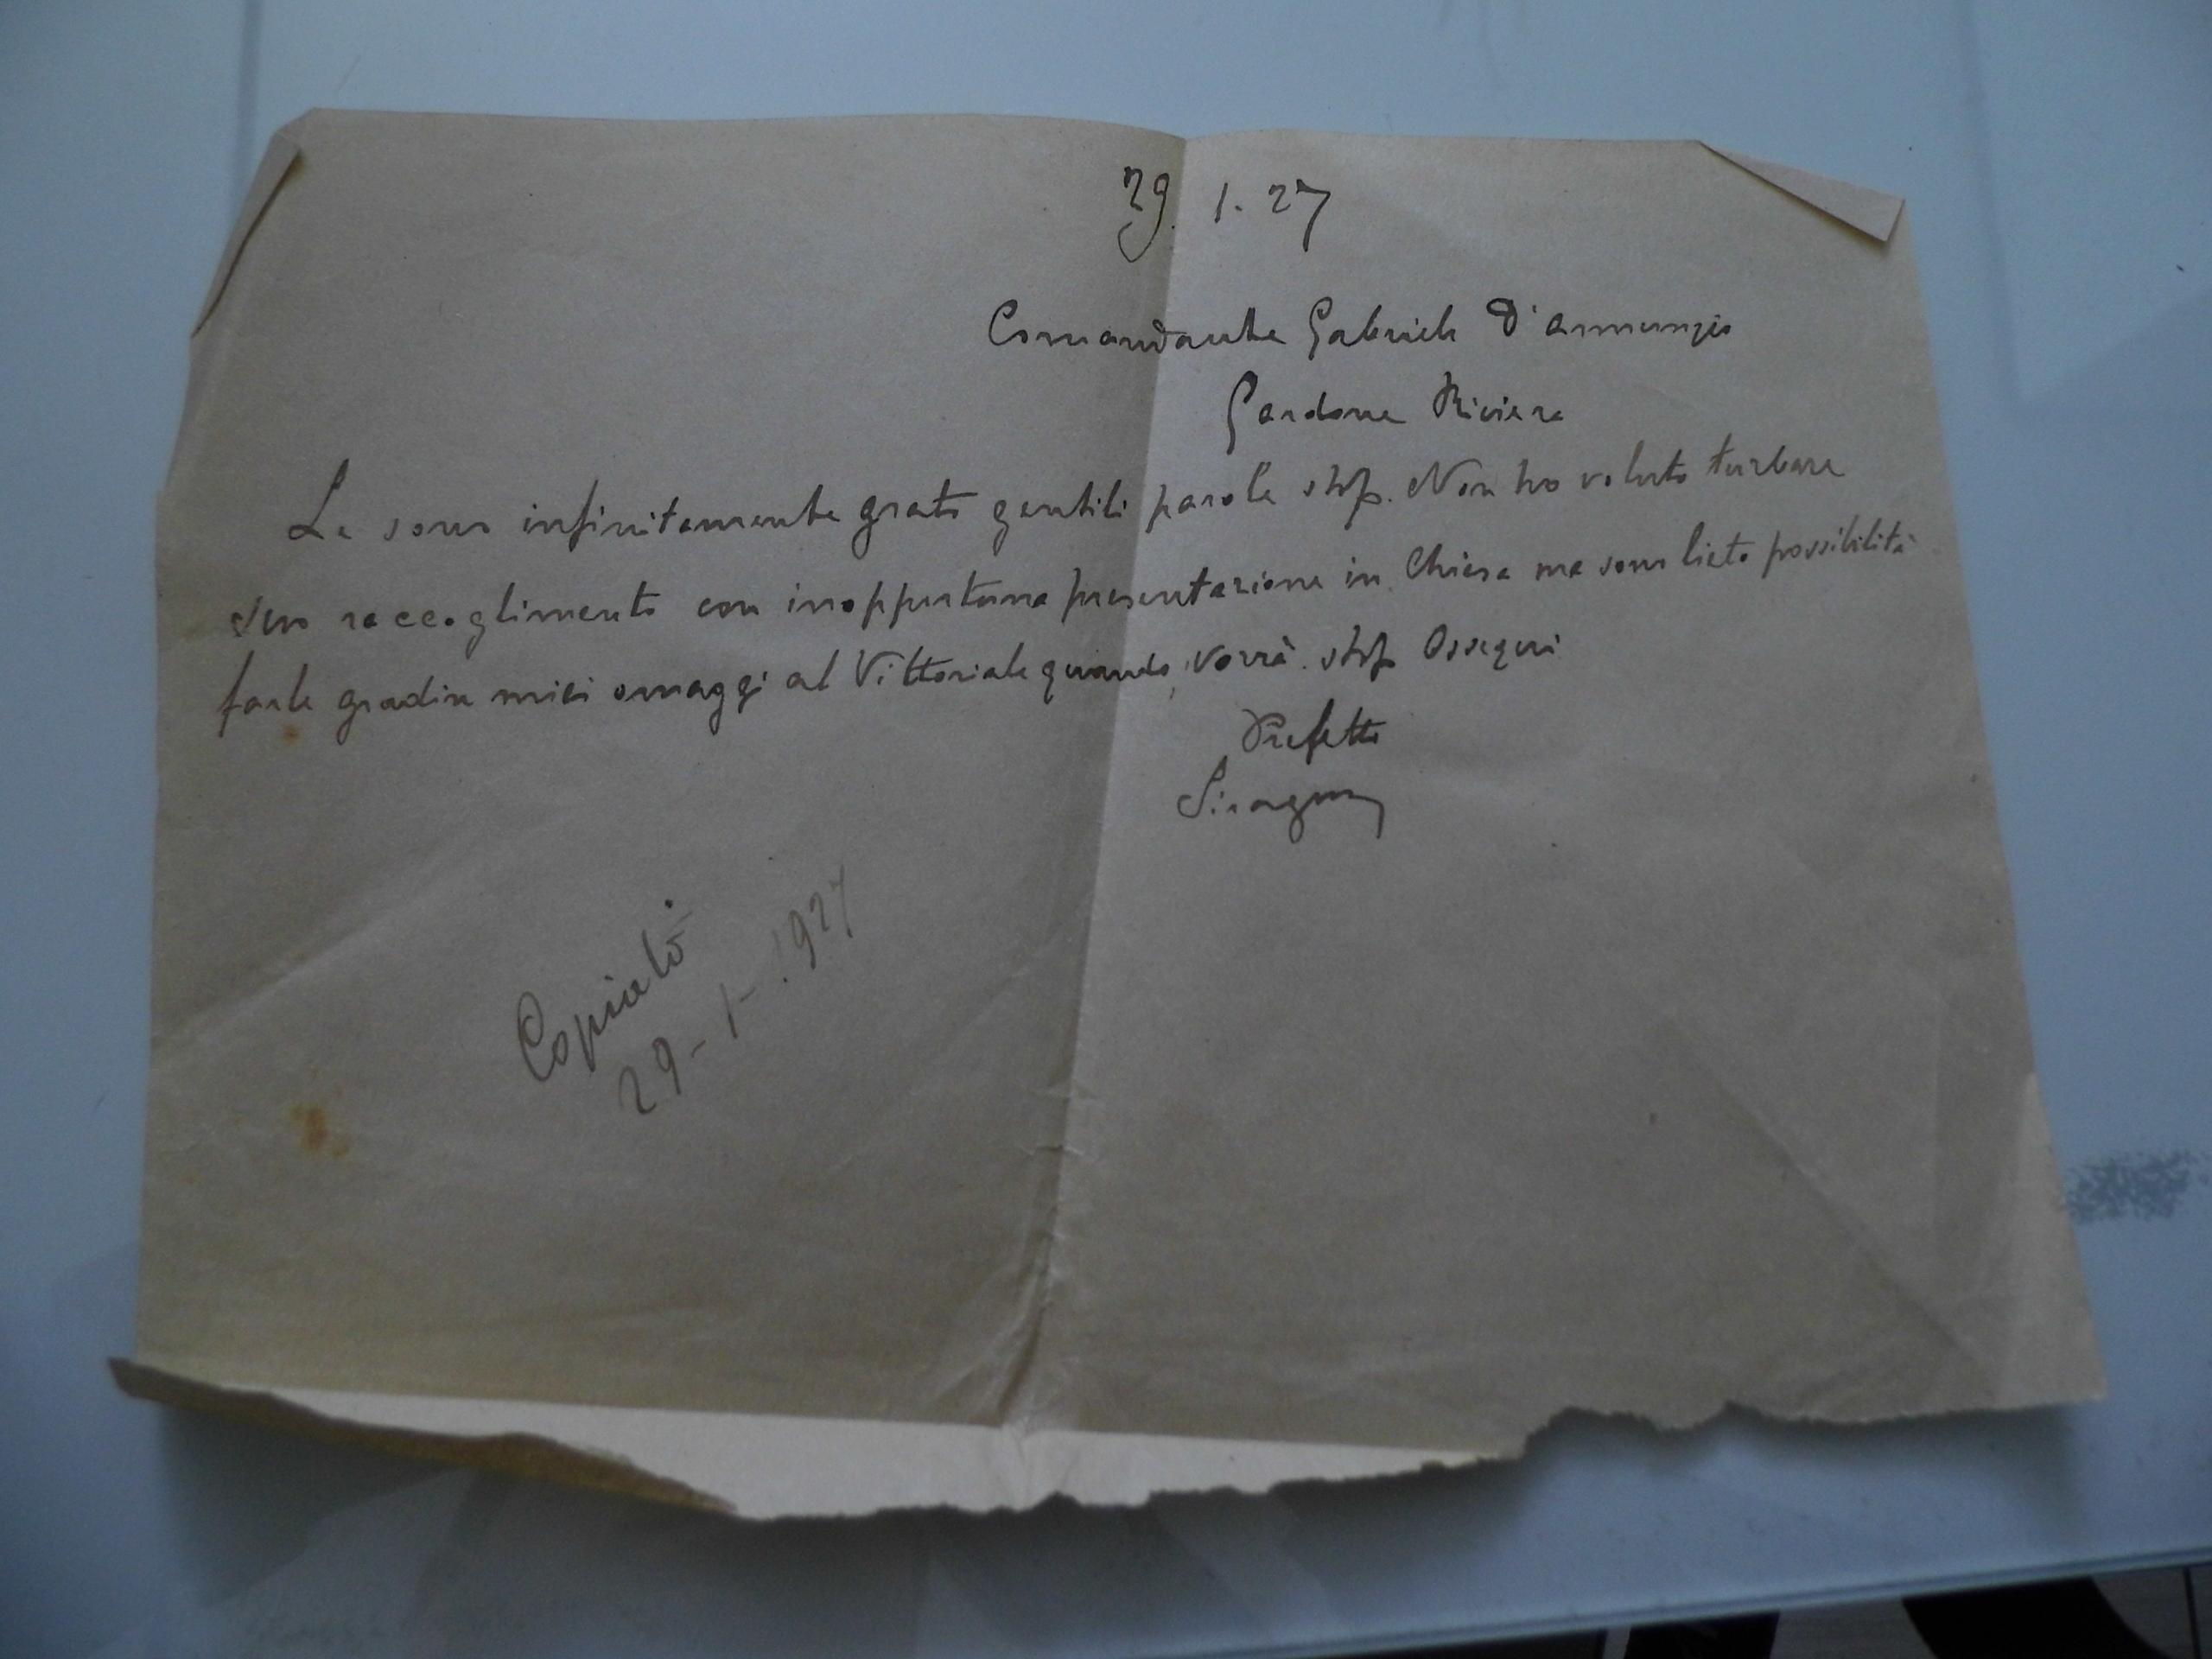 29. 1. 27
Comandante Gabriele D'Annunzio
Gardone Riviera
Le sono infinitamente grato gentili parole stop. Non ho voluto turbare
suo raccoglimento con inopportuna presentazione in Chiesa ma sono lieto possibilità
farle gradire miei omaggi al Vittoriale quando vorrà. stop Ossequi
Prefetto
Siragusa
Copiato
29-1-1927